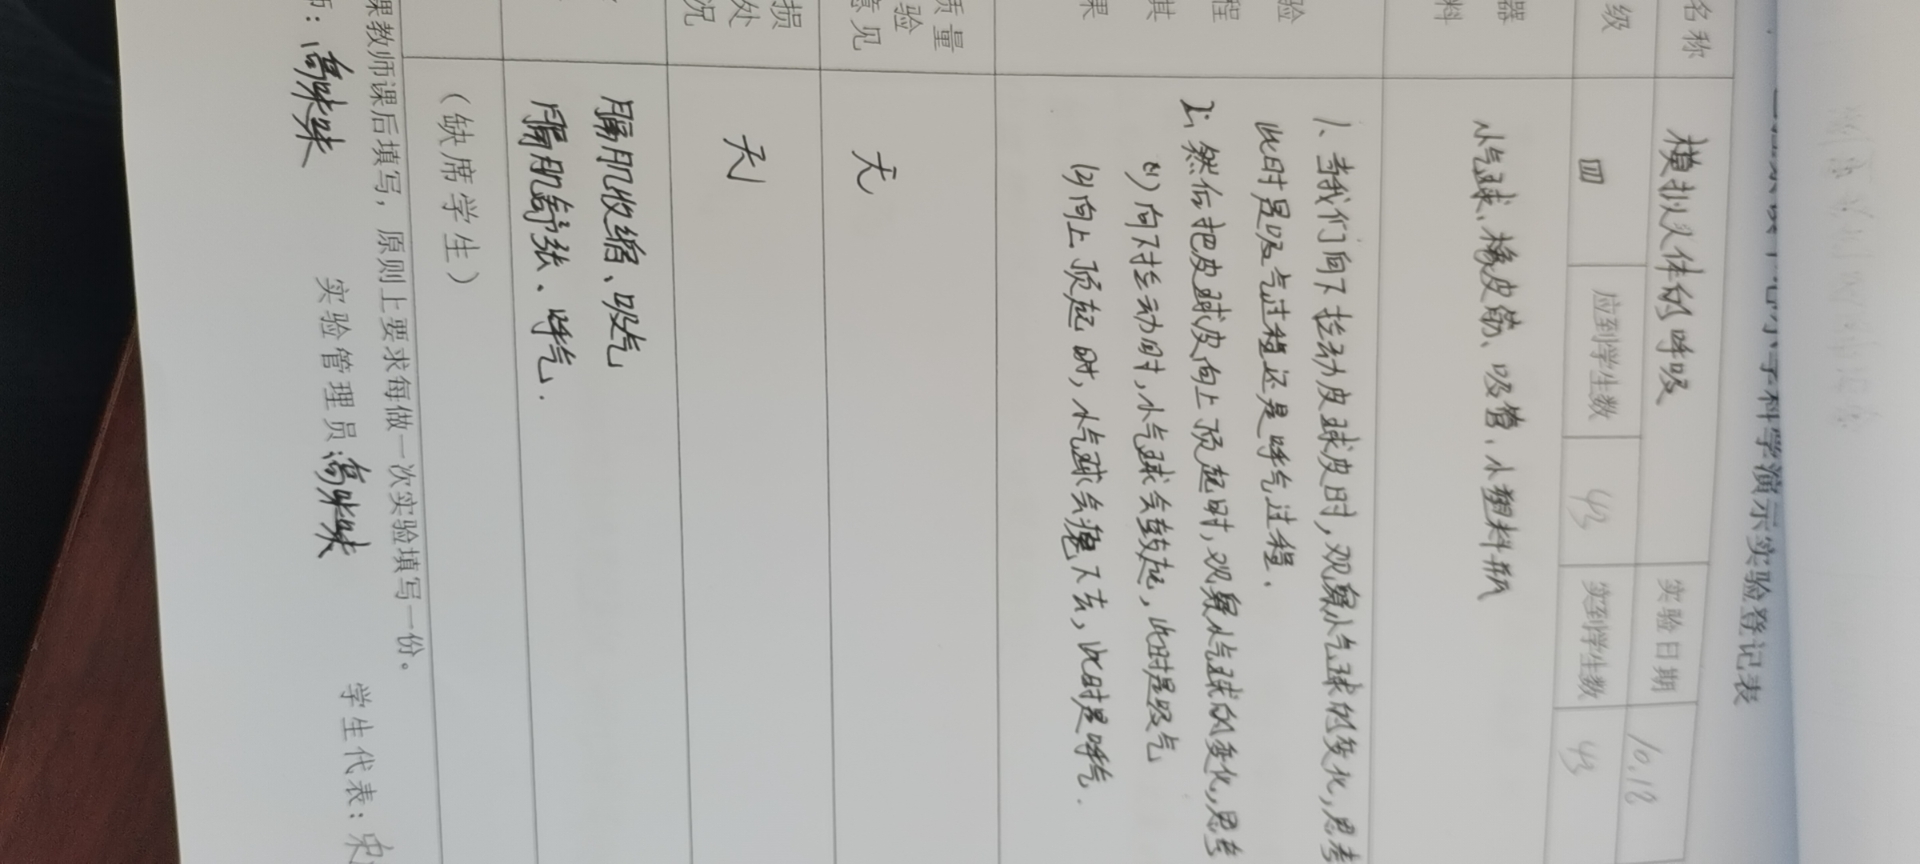 小学科学演示实验登记表
名称 模拟人体的呼吸 实验日期 10.18
级 四 应到学生数 43 实到学生数 43
器
料
小气球、橡皮筋、吸管、小塑料瓶
验
程
其
果
1、当我们向下拉动皮球皮时,观察小气球的变化,思考
此时是吸气过程还是呼气过程.
2、然后把皮球皮向上顶起时,观察小气球的变化,思考
(1)向下拉动时,小气球会鼓起,此时是吸气
(2)向上顶起时,小气球会瘪下去,此时是呼气.
质量
验
意见
无
损
处
况
无
膈肌收缩、吸气
膈肌舒张、呼气.
(缺席学生)
课教师课后填写,原则上要求每做一次实验填写一份。
师: 高味味 实验管理员 高味味 学生代表: 宋